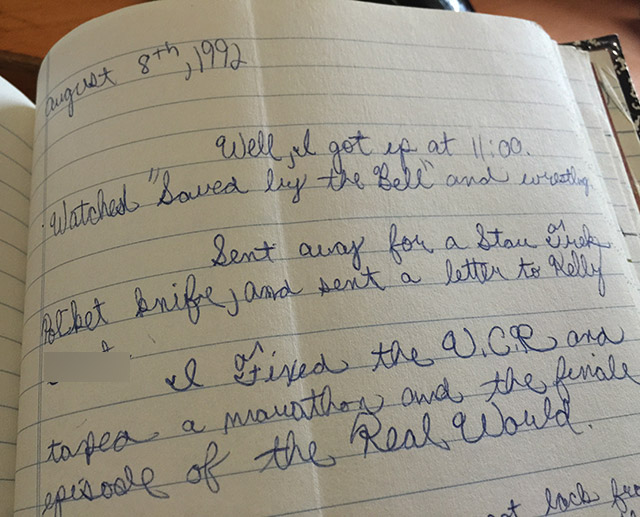 august 8th, 1992
Well, I got up at 11:00.
Watched "Saved by the Bell" and wrestling.
Sent away for a Star Trek
Pocket knife, and sent a letter to Kelly
I Fixed the V.C.R and
taped a marathon and the finale
episode of the Real World.
back from